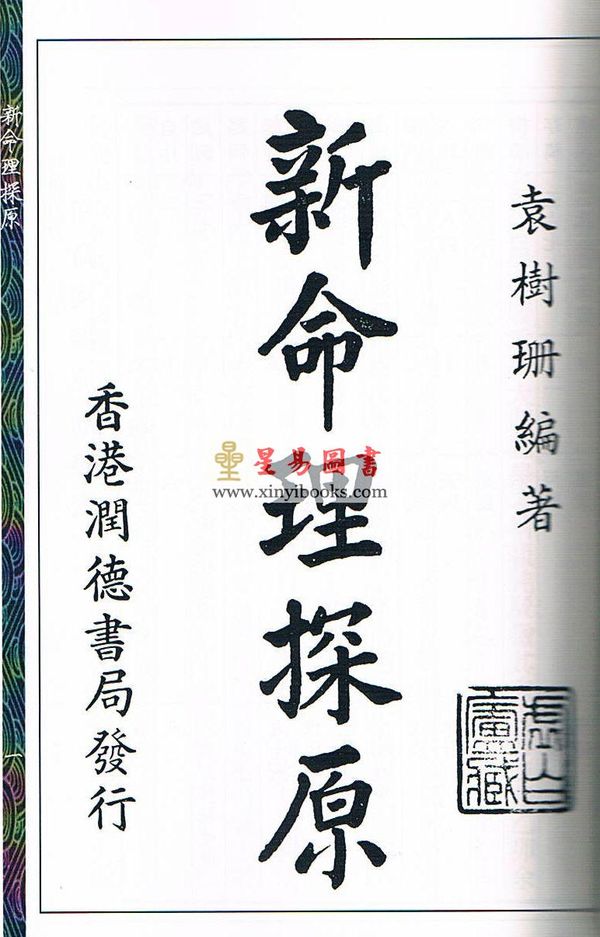 袁樹珊編著
新命理探原
香港潤德書局發行
虛白廬藏
新命理探原
一
星易圖書
www.xinyibooks.com